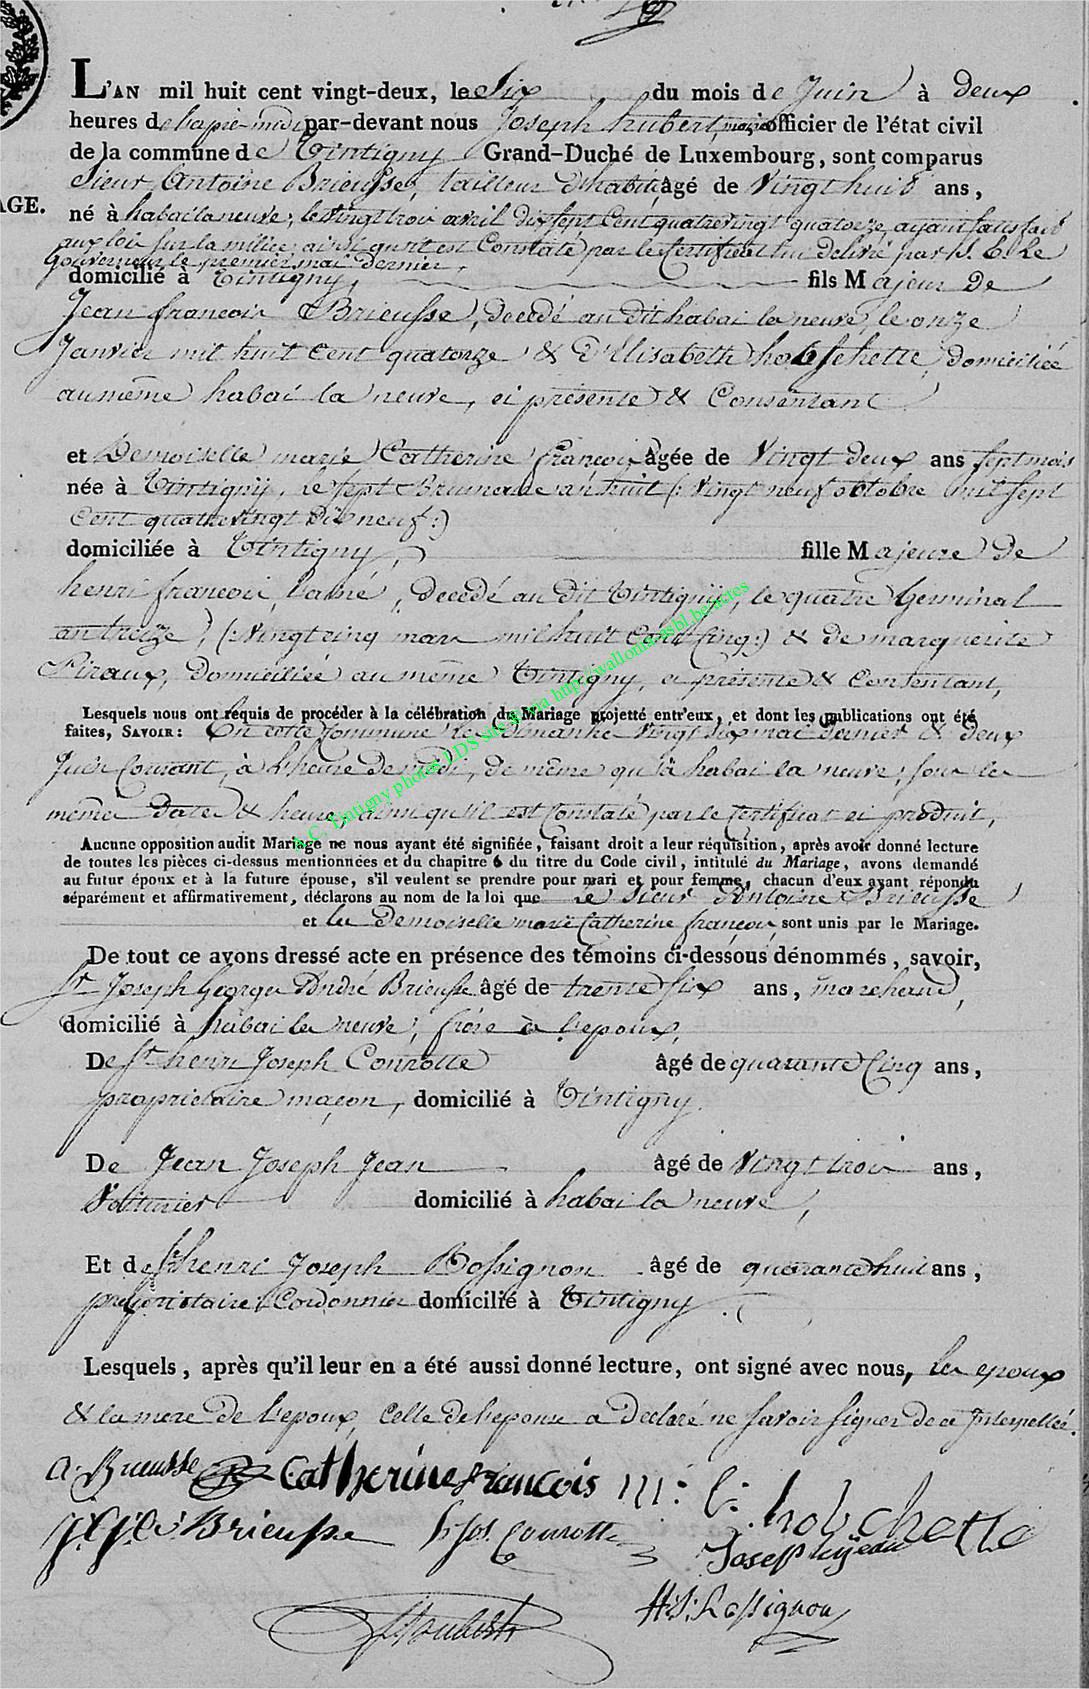 L'AN mil huit cent vingt-deux, le Six du mois de Juin à deux
heures de l'après-midi par-devant nous Joseph hubert, maire officier de l'état civil
de la commune de Tintigny Grand-Duché de Luxembourg, sont comparus
Sieur Antoine Brieusse, tailleur d'habit, âgé de Vingt huit ans,
AGE.
né à habai la neuve, le vingt trois avril dix sept Cent quatre vingt quatorze, ayant satisfait
aux lois sur la milice, ainsi qu'il est Constaté par le Certificat lui délivré par S. E. Le
Gouverneur le premier mai dernier,
domicilié à Tintigny, fils Majeur De
Jean françois Brieusse, decedé au dit habai la neuve, le onze
Janvier mil huit Cent quatorze & D'Elisabeth hobschette, domiciliée
au même habai la neuve, ci présente & Consentant
et Demoiselle marie Catherine françois âgée de Vingt deux ans sept mois
née à Tintigny, le sept Brumaire an huit (: Vingt neuf octobre mil sept
Cent quatre vingt dix neuf :)
domiciliée à Tintigny, fille Majeure De
henri françois, l'ainé, decedé au dit Tintigny, le quatre Germinal
an treize, (: Vingt cinq mars mil huit Cent Cinq :) & de marguerite
Piraux, Domiciliée au même Tintigny, ci présente & Consentant,
Lesquels nous ont requis de procéder à la célébration du Mariage projetté entr'eux, et dont les publications ont été
faites, SAVOIR : En cette Commune les Dimanche vingt six mai dernier & deux
Juin Courant, à l'heure de midi, de même qu'à habai la neuve, sous les
même Date & heure, ainsi qu'il est Constaté par le Certificat ci produit,
Aucune opposition audit Mariage ne nous ayant été signifiée, faisant droit a leur réquisition, après avoir donné lecture
de toutes les pièces ci-dessus mentionnées et du chapitre 6 du titre du Code civil, intitulé du Mariage, avons demandé
au futur époux et à la future épouse, s'il veulent se prendre pour mari et pour femme, chacun d'eux ayant répondu
séparément et affirmativement, déclarons au nom de la loi que Le Sieur Antoine Brieusse
et la Demoiselle marie Catherine françois, sont unis par le Mariage.
De tout ce avons dressé acte en présence des témoins ci-dessous dénommés, savoir,
Sr Joseph George André Brieusse âgé de trente six ans, marchand,
domicilié à habai la neuve, frère à l'epoux,
De Sr henri Joseph Conrotte âgé de quarante Cinq ans,
propriétaire maçon, domicilié à Tintigny.
De Jean Joseph Jean âgé de Vingt trois ans,
Voiturier domicilié à habai la neuve,
Et de Sr henri Joseph Rossignon âgé de quarante huit ans,
propriétaire Cordonnier domicilié à Tintigny.
Lesquels, après qu'il leur en a été aussi donné lecture, ont signé avec nous, les epoux
& la mere de l'epoux, Celle de l'epouse a Declaré ne savoir signer de ce Interpellée.
A. Brieusse Catherine francois m: C: hobchette
J. G. A. Brieusse h. Jos. Conrotte Joseph jean
H. J. Rossignon
J. Hubert
A.C. Tintigny photos LDS site d via http://wallonia.asbl.be/actes